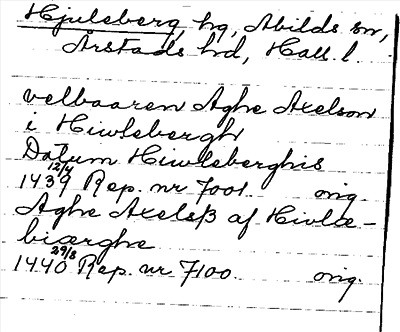 Hjuleberg, hg, Abilds sn,
Årstads hd, Hall. l.
velbaaren Aghe Axelson
i Hiwlebergh
Datum Hiwleberghis
1439 12/4 Rep. nr 7001. orig.
Aghe Axelsß af Hiwlæ-
biærghe
1440 29/8 Rep. nr 7100. orig.